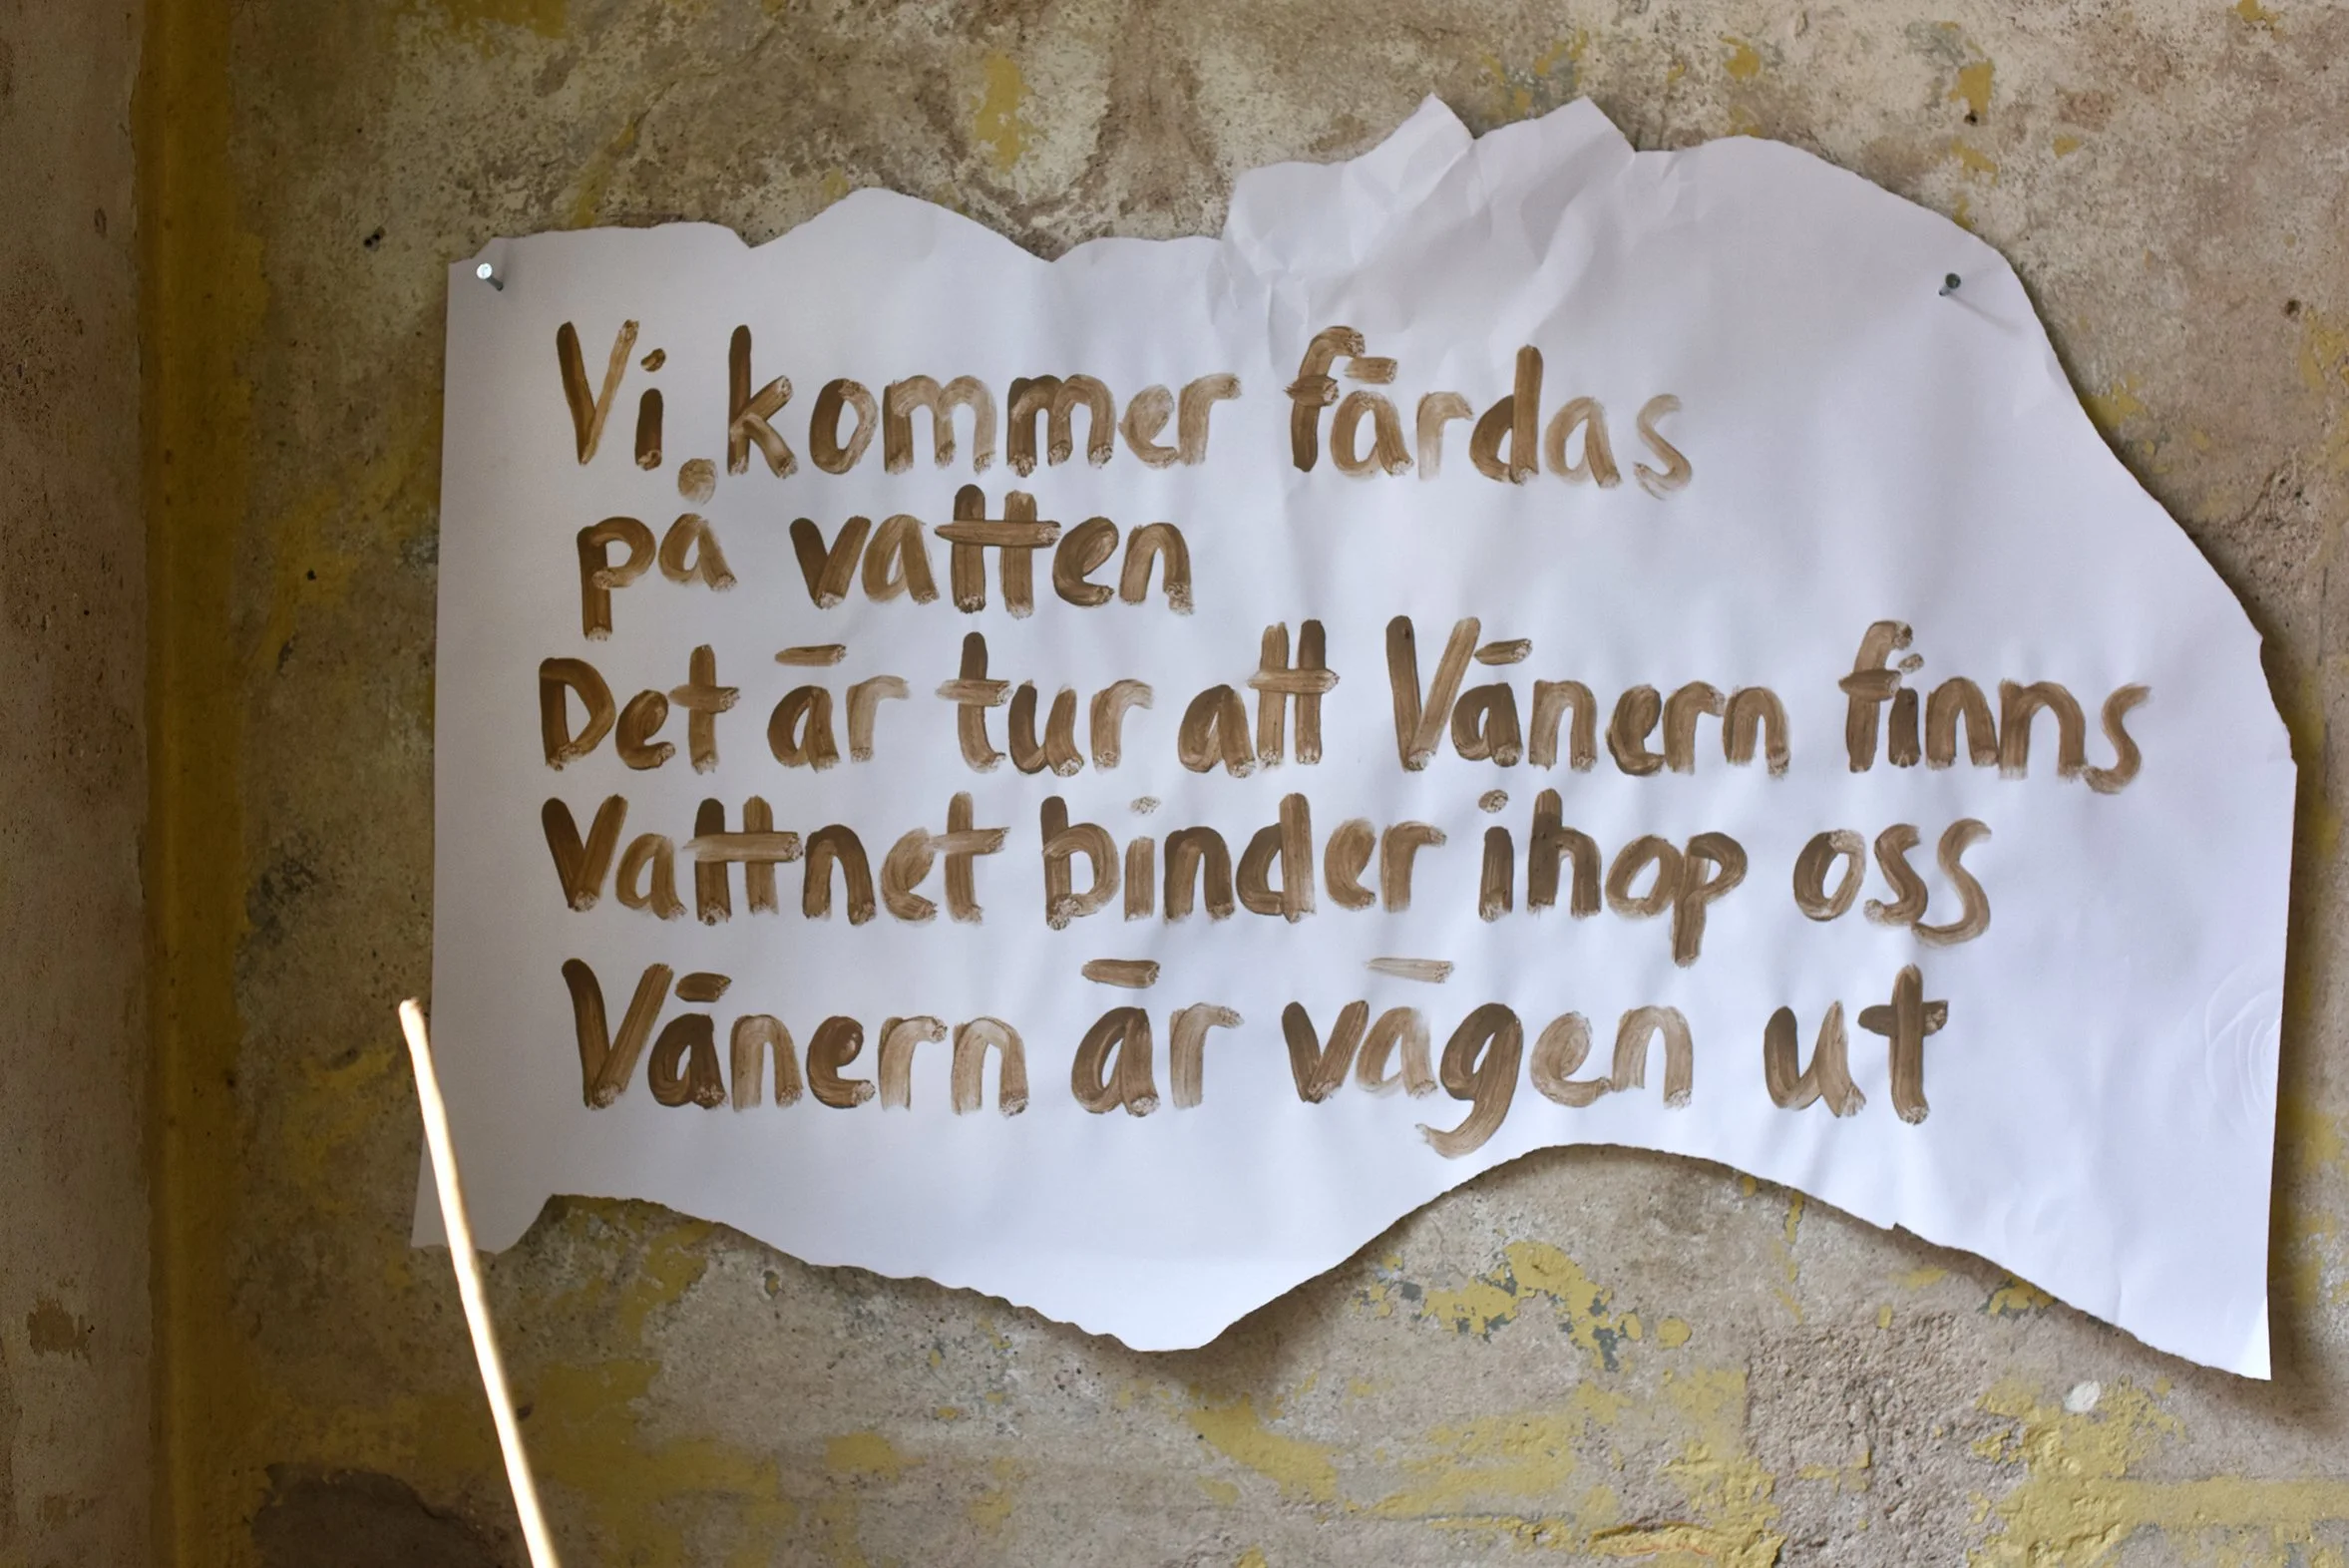 Vi kommer färdas
på vatten
Det är tur att Vänern finns
Vattnet binder ihop oss
Vänern är vägen ut